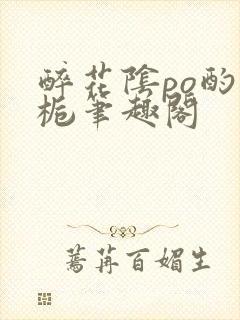 醉花陰po酌
梔筆趣閣
蔫苒百媚生